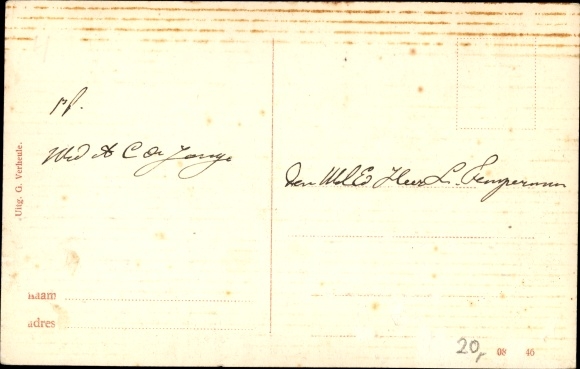 pf.
Wed A C de Jonge
Den WelEd Heer L. Tempermn
Uitg. G. Verheule.
naam
adres
20,-
08 46